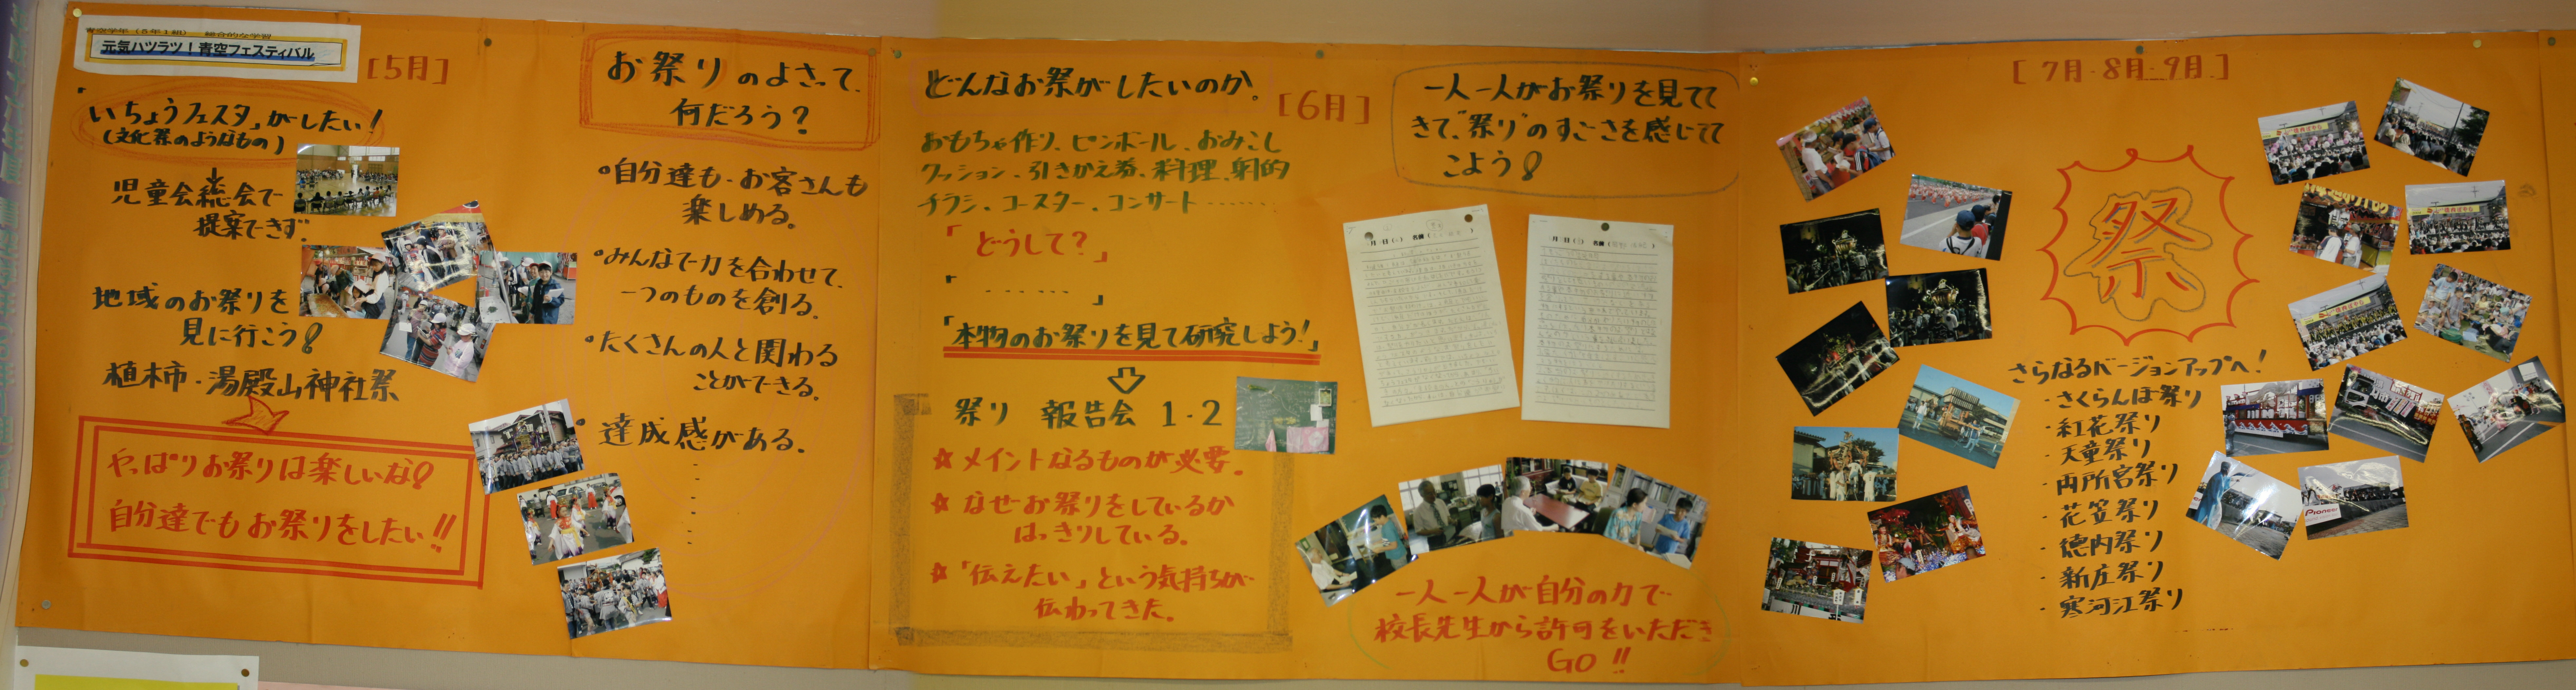 元気ハツラツ！青空フェスティバル
[5月]
「いちょうフェスタ」がしたい！
(文化祭のようなもの)
↓
児童会総会で
提案できず…
地域のお祭りを
見に行こう！
植木市・湯殿山神社祭
やっぱりお祭りは楽しいな！
自分達でもお祭りをしたい！！
お祭りのよさって、
何だろう？
・自分達も、お客さんも
楽しめる。
・みんなで力を合わせて、
一つのものを創る。
・たくさんの人と関わる
ことができる。
・達成感がある。
どんなお祭がしたいのか。
[6月]
おもちゃ作り、ピンボール、おみこし
クッション、引きかえ券、料理、射的
チラシ、コースター、コンサート……
「どうして？」
「……」
「本物のお祭りを見て研究しよう！」
祭り 報告会 1・2
☆メイントなるものが必要。
☆なぜお祭りをしているか
はっきりしている。
☆「伝えたい」という気持ちが
伝わってきた。
一人一人がお祭りを見て
きて、"祭り"のすごさを感じて
こよう！
一人一人が自分の力で
校長先生から許可をいただき
GO！！
[7月・8月・9月]
祭
さらなるバージョンアップへ！
・さくらんぼ祭り
・紅花祭り
・天童祭り
・両所宮祭り
・花笠祭り
・徳内祭り
・新庄祭り
・寒河江祭り
Pioneer